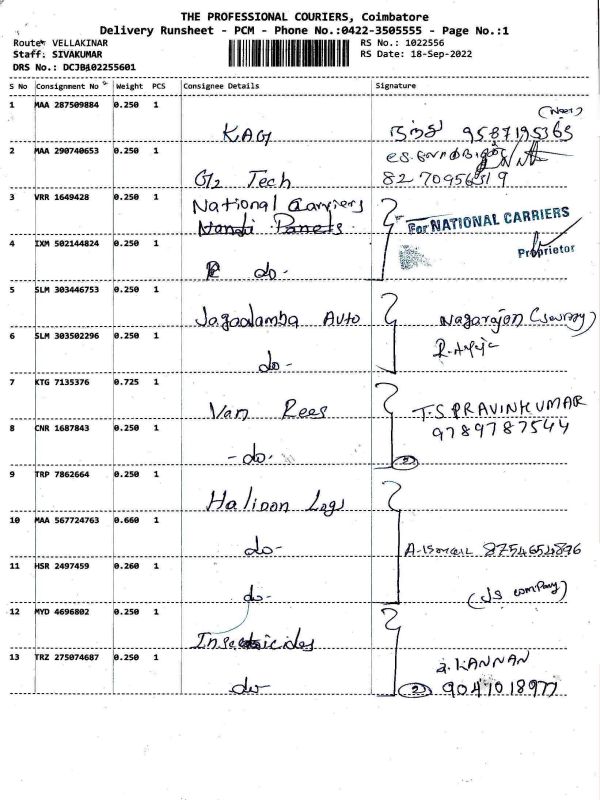 THE PROFESSIONAL COURIERS, Coimbatore
Delivery Runsheet - PCM - Phone No.:0422-3505555 - Page No.:1
Route: VELLAKINAR RS No.: 1022556
Staff: SIVAKUMAR RS Date: 18-Sep-2022
DRS No.: DCJB102255601
S No Consignment No Weight PCS Consignee Details Signature
1 MAA 287509884 0.250 1
KAG நந்து 9587195365
2 MAA 290740653 0.250 1
G12 Tech 8270956519
3 VRR 1649428 0.250 1
National Carriers For NATIONAL CARRIERS
4 IXM 502144824 0.250 1
do- Proprietor
5 SLM 303446753 0.250 1
Jagadamba Auto Nagarajan
6 SLM 303502296 0.250 1
do-
7 KTG 7135376 0.725 1
Van Rees T.S.PRAVINKUMAR
8 CNR 1687843 0.250 1 9789787544
-do- 2
9 TRP 7862664 0.250 1
Halidon Logs
10 MAA 567724763 0.660 1
do- A-Ismail 8754654896
11 HSR 2497459 0.260 1
do- (JS company)
12 MYD 4696802 0.250 1
Insecticides
13 TRZ 275074687 0.250 1 KANNAN
do- 2 9047018977